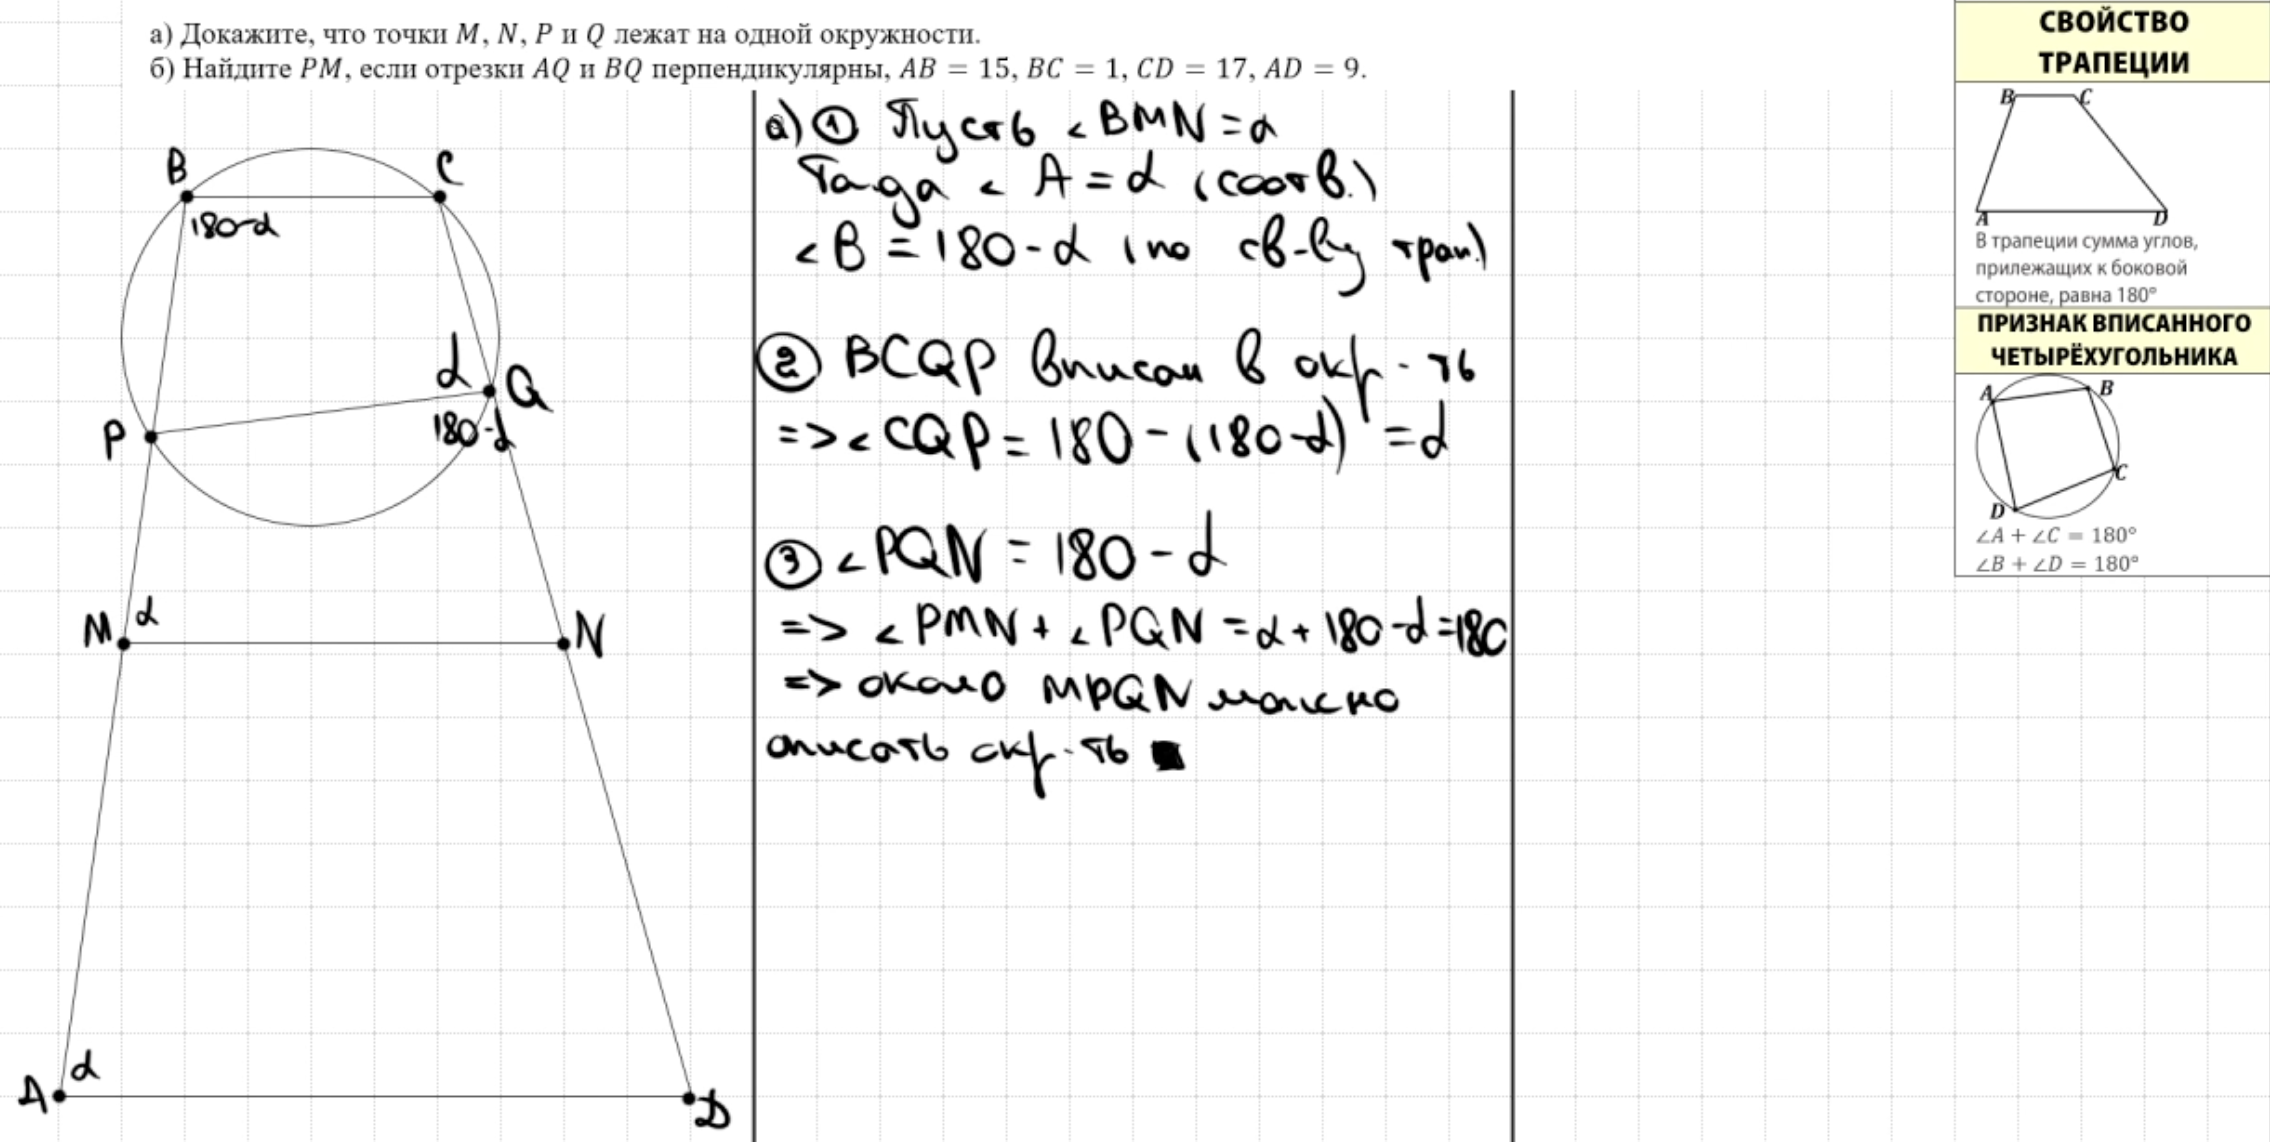 а) Докажите, что точки M, N, P и Q лежат на одной окружности.
б) Найдите PM, если отрезки AQ и BQ перпендикулярны, AB = 15, BC = 1, CD = 17, AD = 9.
B
C
180-α
α
Q
P
180-α
M
α
N
α
A
D
а) ① Пусть ∠BMN = α
Тогда ∠A = α (соотв.)
∠B = 180 - α (по св-ву трап.)
② BCQP вписан в окр-ть
=> ∠CQP = 180 - (180-α) = α
③ ∠PQN = 180 - α
=> ∠PMN + ∠PQN = α + 180-α = 180
=> около MPQN можно
описать окр-ть ■
СВОЙСТВО
ТРАПЕЦИИ
B
C
A
D
В трапеции сумма углов,
прилежащих к боковой
стороне, равна 180°
ПРИЗНАК ВПИСАННОГО
ЧЕТЫРЁХУГОЛЬНИКА
A
B
C
D
∠A + ∠C = 180°
∠B + ∠D = 180°